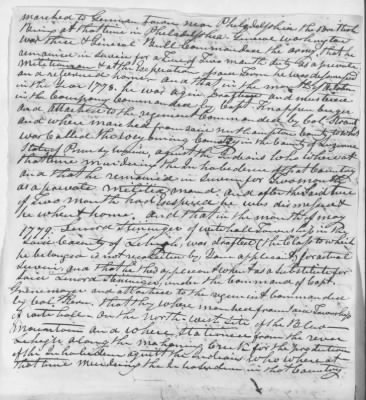 marched to German Town near Philadelphia the British
Being at that time in Philadelphia General Washington
was there & General Bull Commanded the army that he
remained in service for a time of Two months duty as a private
Militiaman & at the expiration of said Time he was dismissed
and returned home and that in the month of
in the year 1778. he was again drafted and mustered
in the Company Commanded by Capt.
and attached to the regiment Commanded by Col.
and where marched from said Northampton County to what
was Called the Wyoming Country in the County of Luzerne
State of Pennsylvania, against the Indians who where at
that time murdering the Inhabitents of that Country
and that he remained in Service for Two months
as a private Militia man. and after the said time
of Two month had expired he was dismissed &
he whent home. and that in the month of may
1779. of whitehall Township in the
said County of Lehigh, was drafted (the Class to which
he belonged is not recollected by Said applicant) for actual
Service and that he this applicant whent as a Substitute for
said under the Command of Capt.
and attached to the regiment Commanded
by Col. that they where marched from said Township
of whitehall on the north-west side of the Blue
Mountain and where Stationed from the river
Lehigh along the mahoning Creek for the protection
of the Inhabitents against the Indians who where at
that time murdering the Inhabitents in that Country